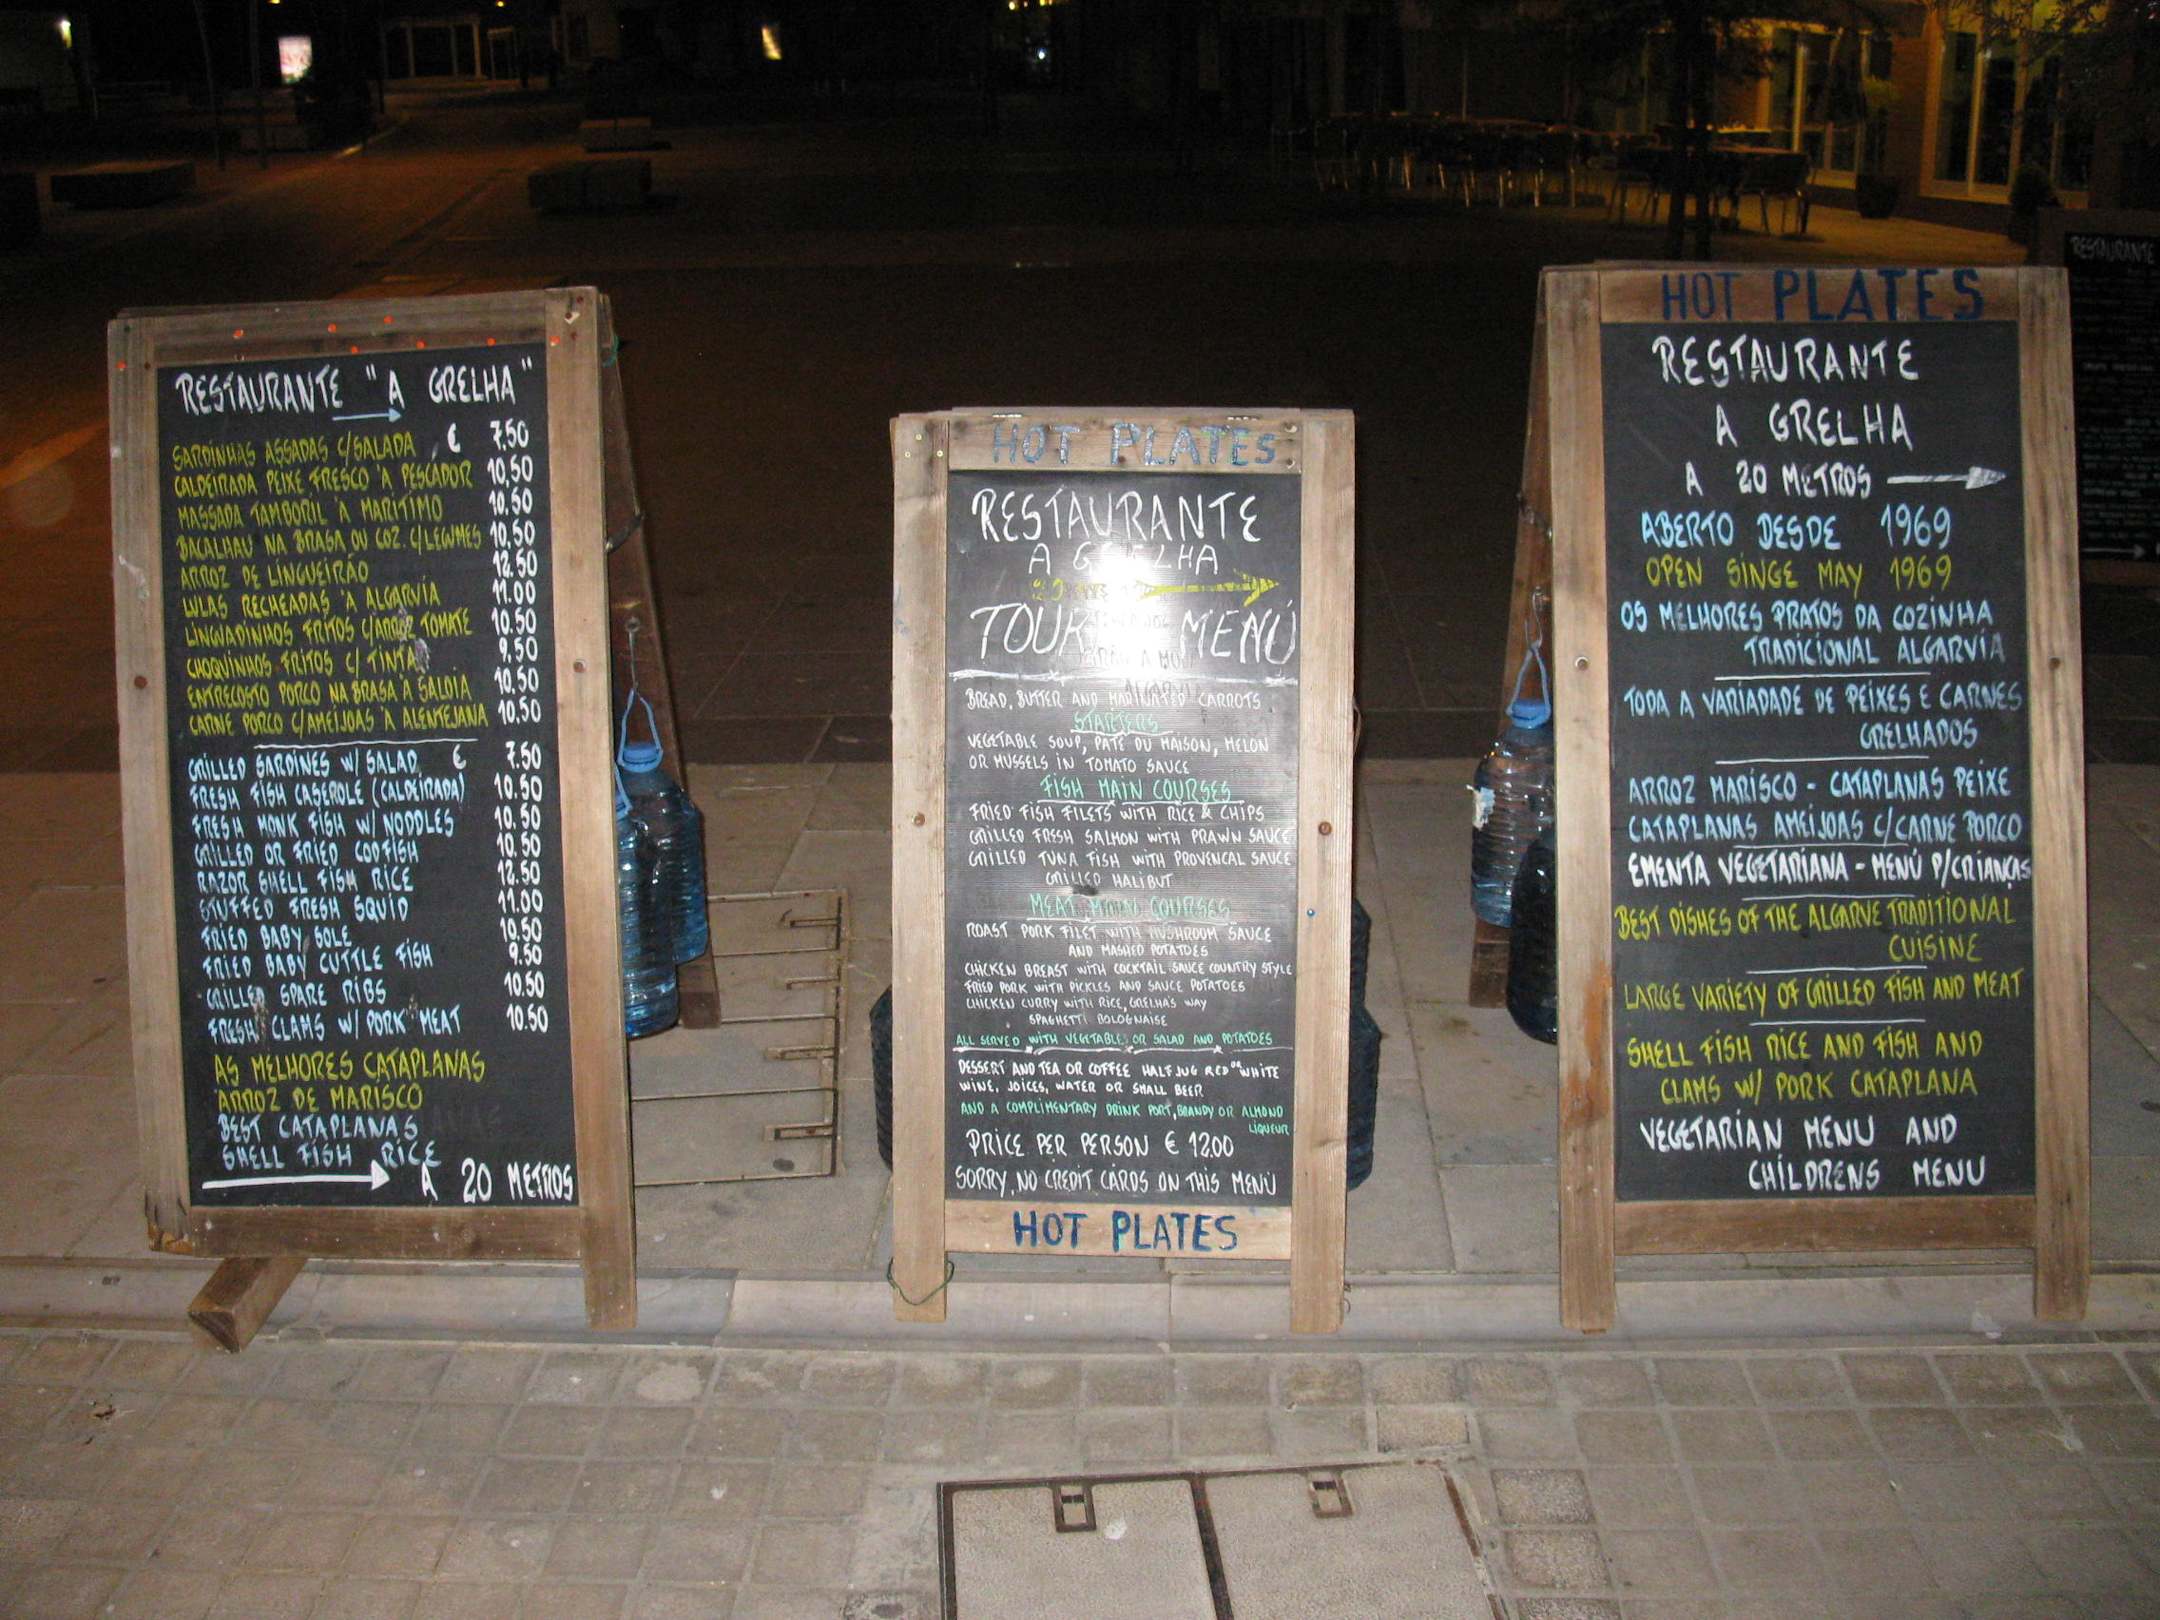 RESTAURANTE "A GRELHA"
SARDINHAS ASSADAS C/SALADA € 7.50
CALDEIRADA PEIXE FRESCO À PESCADOR 10,50
MASSADA TAMBORIL À MARITIMO 10.50
BACALHAU NA BRASA OU COZ. C/LEGUMES 10,50
ARROZ DE LINGUEIRÃO 12.50
LULAS RECHEADAS À ALGARVIA 11.00
LINGUADINHOS FRITOS C/ARROZ TOMATE 10.50
CHOQUINHOS FRITOS C/ TINTA 9,50
ENTRECOSTO PORCO NA BRASA À SALOIA 10,50
CARNE PORCO C/AMEIJOAS À ALENTEJANA 10.50
GRILLED SARDINES W/ SALAD € 7.50
FRESH FISH CASEROLE (CALDEIRADA) 10.50
FRESH MONK FISH W/ NODDLES 10.50
GRILLED OR FRIED CODFISH 10.50
RAZOR SHELL FISH RICE 12.50
STUFFED FRESH SQUID 11.00
FRIED BABY SOLE 10.50
FRIED BABY CUTTLE FISH 9.50
GRILLED SPARE RIBS 10.50
FRESH CLAMS W/ PORK MEAT 10.50
AS MELHORES CATAPLANAS
ARROZ DE MARISCO
BEST CATAPLANAS
SHELL FISH RICE
A 20 METROS
HOT PLATES
RESTAURANTE
A GRELHA
MENÚ
BREAD, BUTTER AND MARINATED CARROTS
STARTERS
VEGETABLE SOUP, PATÉ DU MAISON, MELON
OR MUSSELS IN TOMATO SAUCE
FISH MAIN COURSES
FRIED FISH FILETS WITH RICE & CHIPS
GRILLED FRESH SALMON WITH PRAWN SAUCE
GRILLED TUNA FISH WITH PROVENCAL SAUCE
GRILLED HALIBUT
MEAT MAIN COURSES
ROAST PORK FILET WITH MUSHROOM SAUCE
AND MASHED POTATOES
CHICKEN BREAST WITH COCKTAIL SAUCE COUNTRY STYLE
FRIED PORK WITH PICKLES AND SAUCE POTATOES
CHICKEN CURRY WITH RICE, GRELHA'S WAY
SPAGHETTI BOLOGNAISE
ALL SERVED WITH VEGETABLES OR SALAD AND POTATOES
DESSERT AND TEA OR COFFEE HALF JUG RED OR WHITE
WINE, JOICES, WATER OR SMALL BEER
AND A COMPLIMENTARY DRINK PORT, BRANDY OR ALMOND
LIQUEUR
PRICE PER PERSON € 12.00
SORRY, NO CREDIT CARDS ON THIS MENÚ
HOT PLATES
HOT PLATES
RESTAURANTE
A GRELHA
A 20 METROS
ABERTO DESDE 1969
OPEN SINGE MAY 1969
OS MELHORES PRATOS DA COZINHA
TRADICIONAL ALGARVIA
TODA A VARIADADE DE PEIXES E CARNES
GRELHADOS
ARROZ MARISCO - CATAPLANAS PEIXE
CATAPLANAS AMEIJOAS C/CARNE PORCO
EMENTA VEGETARIANA - MENÚ P/CRIANÇAS
BEST DISHES OF THE ALGARVE TRADITIONAL
CUISINE
LARGE VARIETY OF GRILLED FISH AND MEAT
SHELL FISH RICE AND FISH AND
CLAMS W/ PORK CATAPLANA
VEGETARIAN MENU AND
CHILDRENS MENU
RESTAURANTE